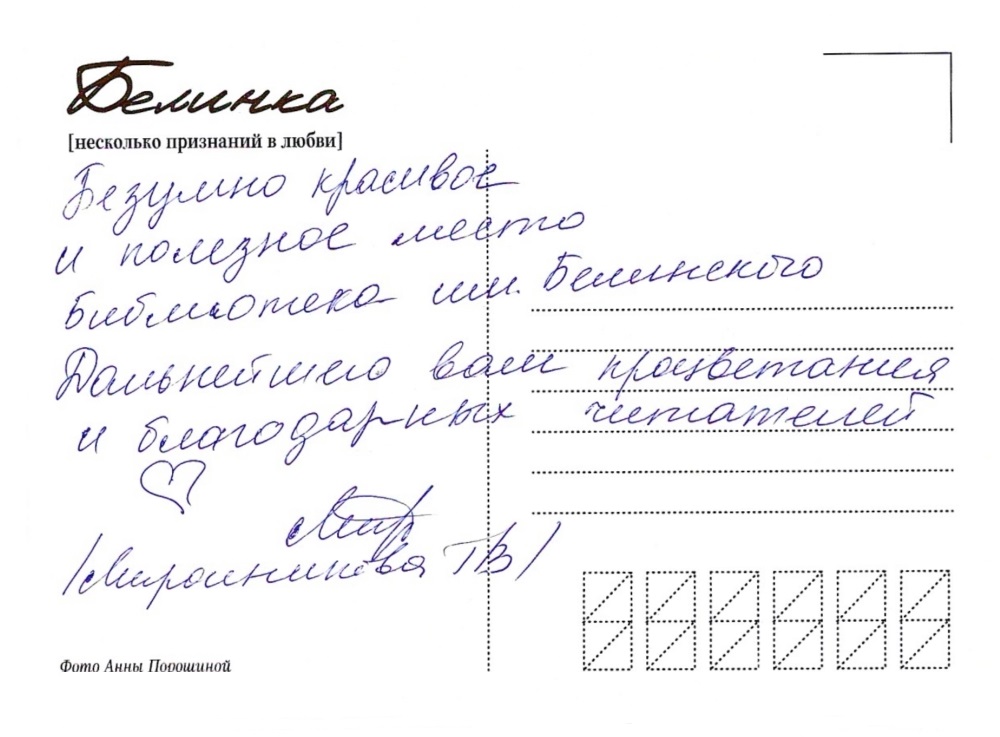 Белинка
[несколько признаний в любви]
Безумно красивое
и полезное место
Библиотека им. Белинского
Дальнейшего вам процветания
и благодарных читателей
Фото Анны Порошиной